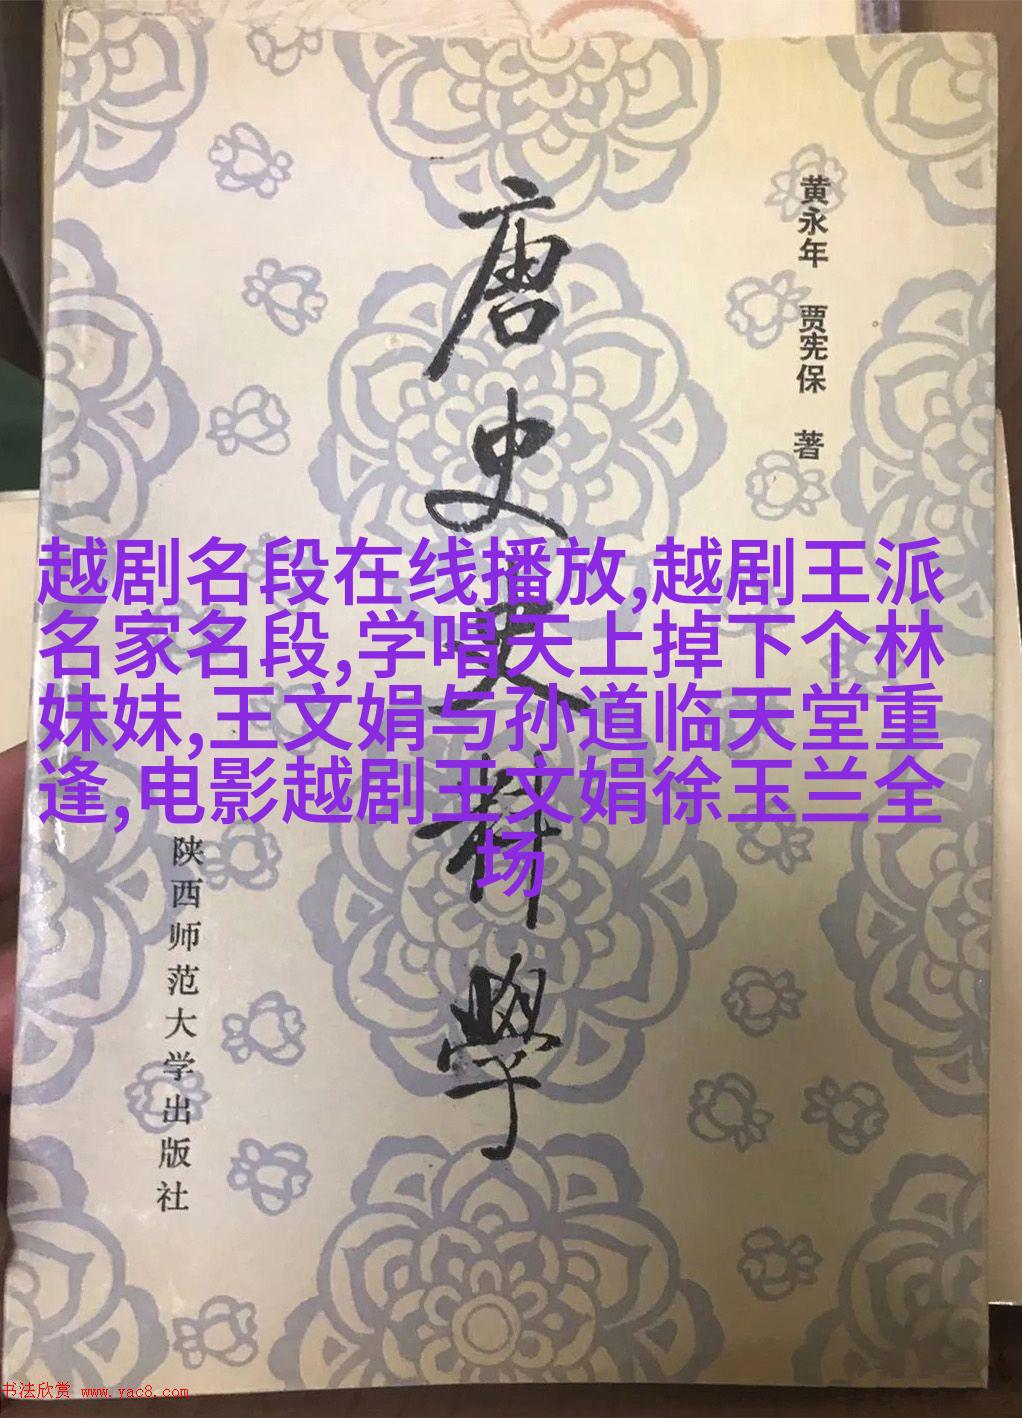 黄永年 贾宪保 著
唐史史料学
越剧名段在线播放,越剧王派
名家名段,学唱天上掉下个林
妹妹,王文娟与孙道临天堂重
逢,电影越剧王文娟徐玉兰全
场
陕西师范大学出版社
书法欣赏 www.yac8.com